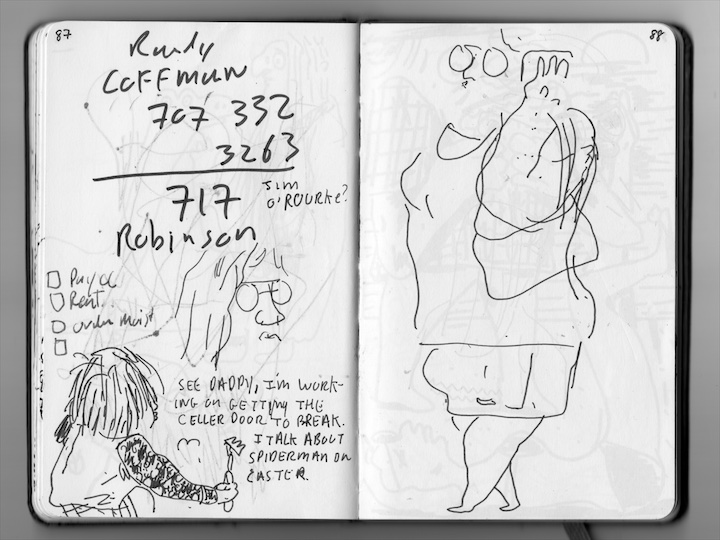 87
Randy
COFFMAN
707 332
3263
717
JIM
O'ROURKE?
Robinson
Rent
SEE DADDY, I'M WORK-
ING ON GETTING THE
CELLER DOOR TO BREAK.
I TALK ABOUT
SPIDERMAN ON
EASTER.
88